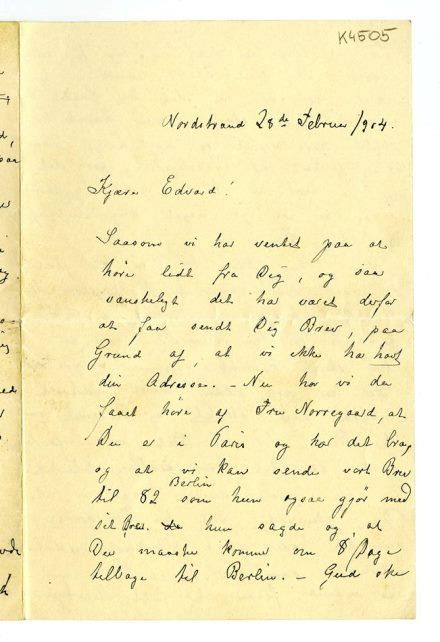 K4505
Nordstrand 28de Februar 1904.
Kjære Edvard!
Saasom vi har ventet paa at
høre lidt fra Dig, og saa
vanskeligt det har været derfor
at faa sendt Dig Brev, paa
Grund af, at vi ikke har havt
din Adresse. – Nu har vi da
faaet høre af Fru Norregaard, at
Du er i Paris og har det bra,
og at vi kan sende vort Brev
til 82 Berlin som hun ogsaa gjør med
sit Brev. hun sagde og, at
Du maaske kommer om 8 Dage
tilbage til Berlin. – Gud ske